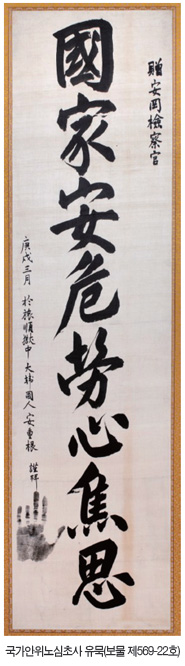 贈安岡檢察官
國家安危勞心焦思
庚戌三月 於旅順獄中 大韓國人 安重根 謹拜
국가안위노심초사 유묵(보물 제569-22호)